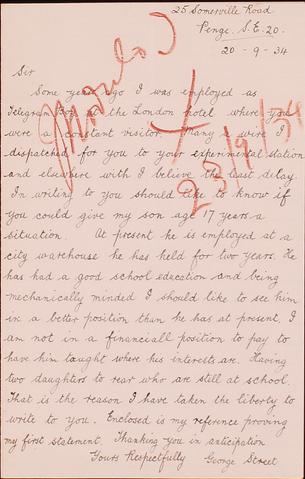 25 Somerville Road
Penge. S.E. 20.
20 - 9 - 34
Sir
Some years ago I was employed as
Telegram Boy at the London hotel where you
were a constant visitor. Many a wire I
dispatched for you to your experimental station
and elsewhere with I belive the least delay.
In writing to you should like to know if
you could give my son age 17 years a
situation. At present he is employed at a
city warehouse he has held for two years. He
has had a good school education and being
mechanically minded I should like to see him
in a better position than he has at present. I
am not in a financiall position to pay to
have him taught where his interests are. Having
two daughters to rear who are still at school.
That is the reason I have taken the liberty to
write to you. Enclosed is my reference proving
my first statement. Thanking you in anticipation
Yours Respectfully George Street
23/9/34